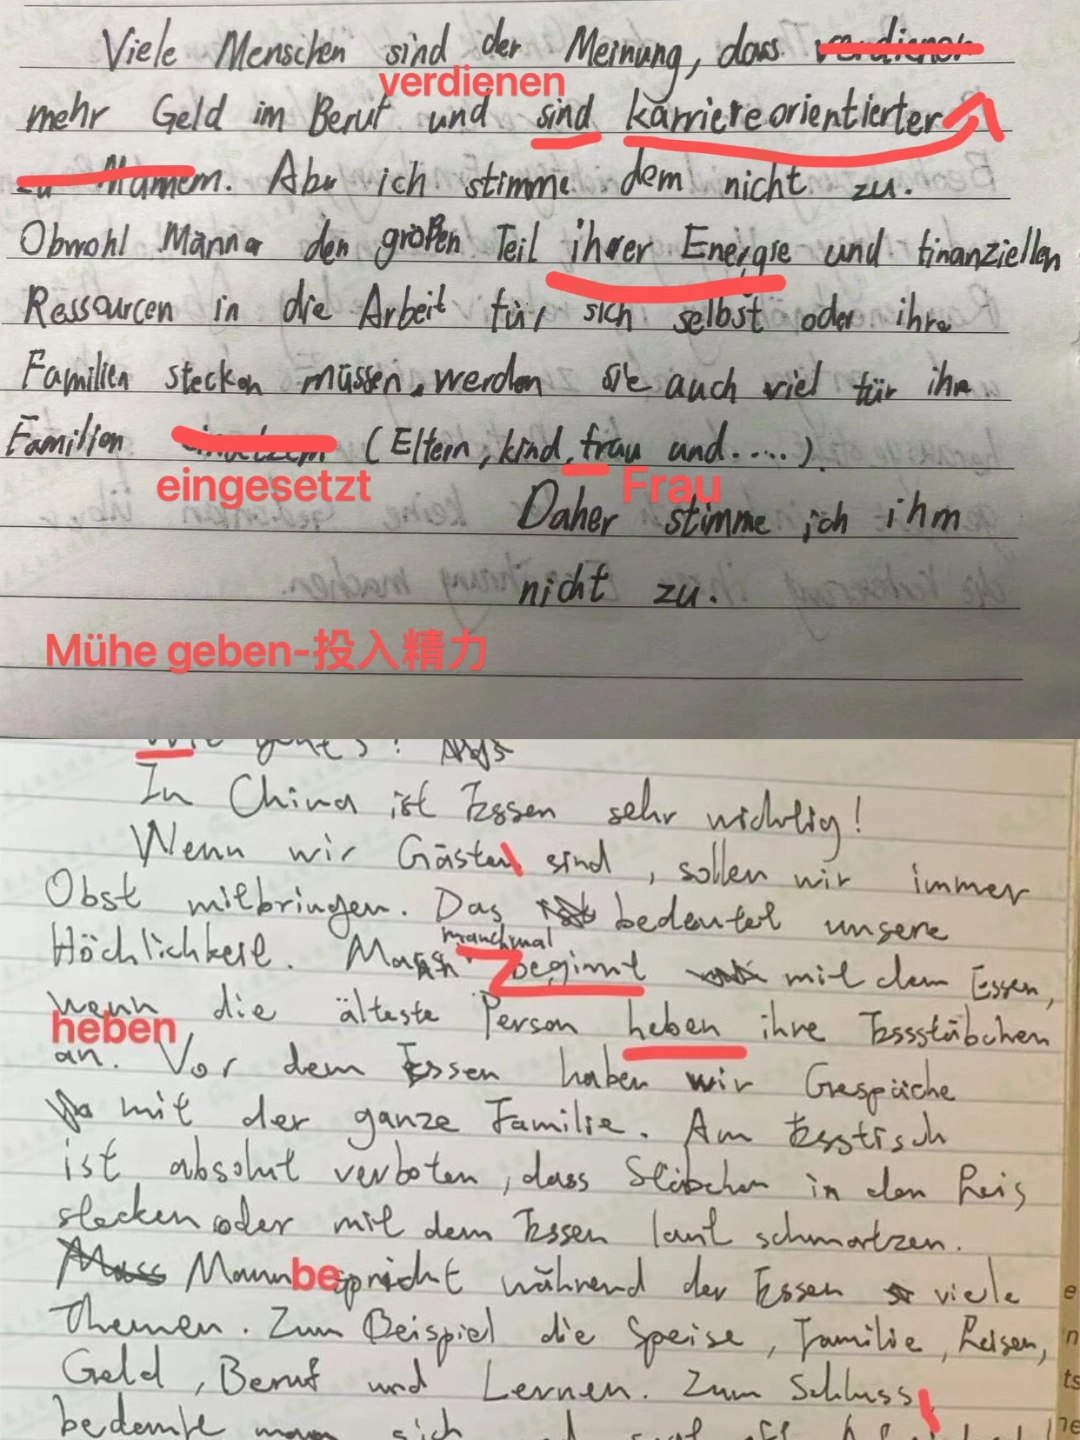 Viele Menschen sind der Meinung, dass verdienen
verdienen
mehr Geld im Beruf und sind karriereorientierter
zu Männern. Aber ich stimme dem nicht zu.
Obwohl Männer den großen Teil ihrer Energie und finanziellen
Ressourcen in die Arbeit für sich selbst oder ihre
Familien stecken müssen, werden sie auch viel für ihre
Familien einsetzen (Eltern, kind, frau und.....).
eingesetzt Frau
Daher stimme ich ihm
nicht zu.
Mühe geben-投入精力
Wie geht's?
In China ist Essen sehr wichtig!
Wenn wir Gästen sind, sollen wir immer
Obst mitbringen. Das bedeutet unsere
manchmal
Höchlichkeit. Mann beginnt mit dem Essen,
wenn die älteste Person heben ihre Essstäbchen
heben
an. Vor dem Essen haben wir Gespäche
mit der ganze Familie. Am Esstisch
ist absolut verboten, dass Stäbchen in den Reis
stecken oder mit dem Essen laut schmartzen.
Mann bespricht während der Essen viele
Themen. Zum Beispiel die Speise, Familie, Reisen,
Geld, Beruf und Lernen. Zum Schluss
bedankt man sich und